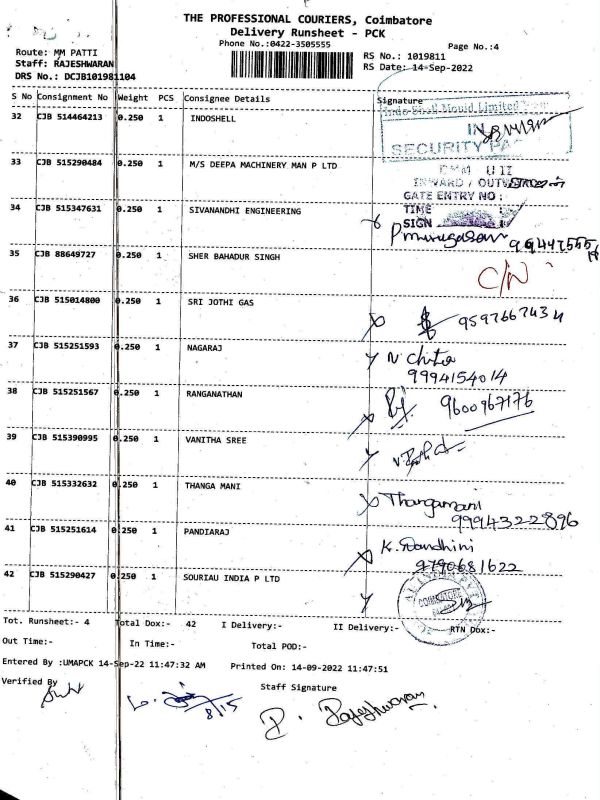 THE PROFESSIONAL COURIERS, Coimbatore
Delivery Runsheet - PCK
Phone No.:0422-3505555
Page No.:4
Route: MM PATTI
RS No.: 1019811
Staff: RAJESHWARAN
RS Date: 14-Sep-2022
DRS No.: DCJB101981104
S No Consignment No Weight PCS Consignee Details Signature
32 CJB 514464213 0.250 1 INDOSHELL
Indo Shell Mould Limited
SECURITY
33 CJB 515290484 0.250 1 M/S DEEPA MACHINERY MAN P LTD
GATE ENTRY NO :
34 CJB 515347631 0.250 1 SIVANANDHI ENGINEERING
TIME
SIGN
P murugasan
35 CJB 88649727 0.250 1 SHER BAHADUR SINGH
C/N
36 CJB 515014800 0.250 1 SRI JOTHI GAS
9597667434
37 CJB 515251593 0.250 1 NAGARAJ
N. Chitra
9994154014
38 CJB 515251567 0.250 1 RANGANATHAN
9600967176
39 CJB 515390995 0.250 1 VANITHA SREE
40 CJB 515332632 0.250 1 THANGA MANI
Thangamani
9994322896
41 CJB 515251614 0.250 1 PANDIARAJ
K. Nandhini
9790681622
42 CJB 515290427 0.250 1 SOURIAU INDIA P LTD
COIMBATORE
Tot. Runsheet:- 4 Total Dox:- 42 I Delivery:- II Delivery:- RTN Dox:-
Out Time:- In Time:- Total POD:-
Entered By :UMAPCK 14-Sep-22 11:47:32 AM Printed On: 14-09-2022 11:47:51
Verified By
Staff Signature
8/15
P. Rajeshwaran